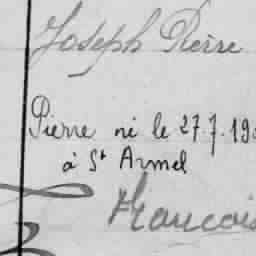 Joseph Pierre
Pierre né le 27.7.19
à St Armel
Francois